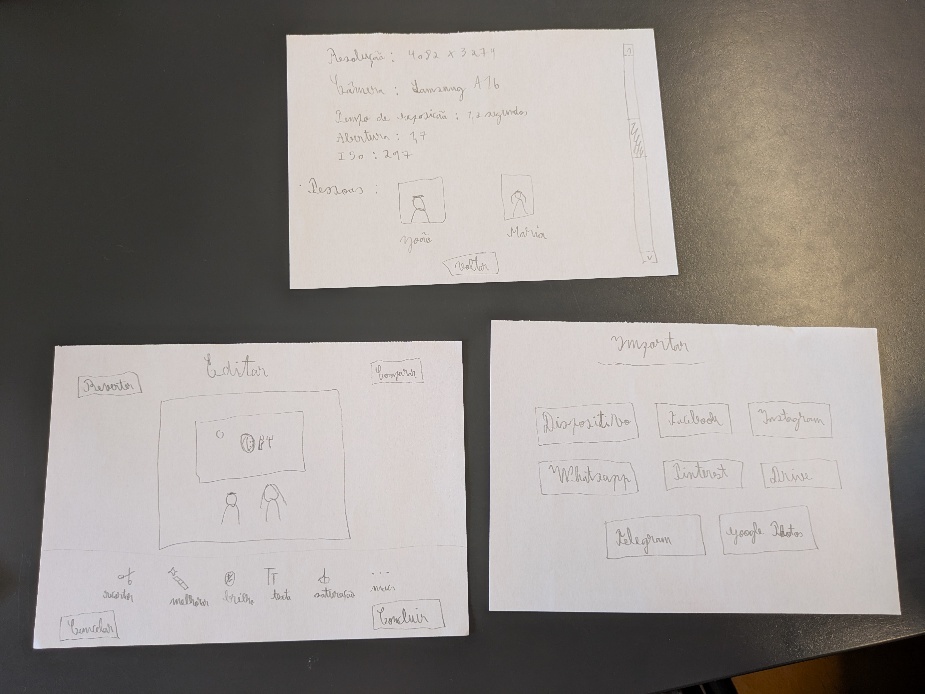 Resolução : 4082 x 3274
Câmera : Samsung A16
Tempo de exposição : 1,2 segundos
Abertura : 1,7
ISO : 297
Pessoas :
João Maria
Voltar
Editar
Reverter Comparar
recortar melhorar brilho texto saturação mais
Cancelar Concluir
Importar
Dispositivo Facebook Instagram
Whatsapp Pinterest Drive
Telegram Google Photos